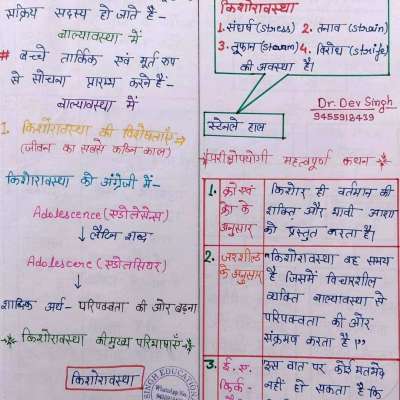 सक्रिय सदस्य हो जाते है-
बाल्यावस्था में
# बच्चे तार्किक एवं मूर्त रुप
से सोचना प्रारम्भ करते हैं-
बाल्यावस्था में
1. किशोरावस्था की विशेषताएं→
(जीवन का सबसे कठिन काल)
किशोरावस्था को अंग्रेजी में-
Adolescence (एडोलेसेन्स)
↓ लैटिन शब्द
Adolescere (एडोलसियर)
↓
शाब्दिक अर्थ- परिपक्वता की ओर बढ़ना
किशोरावस्था की मुख्य परिभाषाएँ→
किशोरावस्था
किशोरावस्था
1. संघर्ष (stress) 2. तनाव (strain)
3. तूफान (stoarm) 4. विरोध (strife)
की अवस्था है।
Dr. Dev Singh
9455918439
स्टेनले हाल
परीक्षोपयोगी महत्वपूर्ण कथन
1. क्रो एवं क्रो के अनुसार
किशोर ही वर्तमान की
शक्ति और भावी आशा
को प्रस्तुत करता है।
2. जरशील्ड के अनुसार
"किशोरावस्था वह समय
है जिसमें विचारशील
व्यक्ति बाल्यावस्था से
परिपक्वता की ओर
संक्रमण करता है।"
3. ई. ए. किर्क-
इस बात पर कोई मतभेद
नहीं हो सकता है कि
SINGH EDUCATION
WhatsApp No.